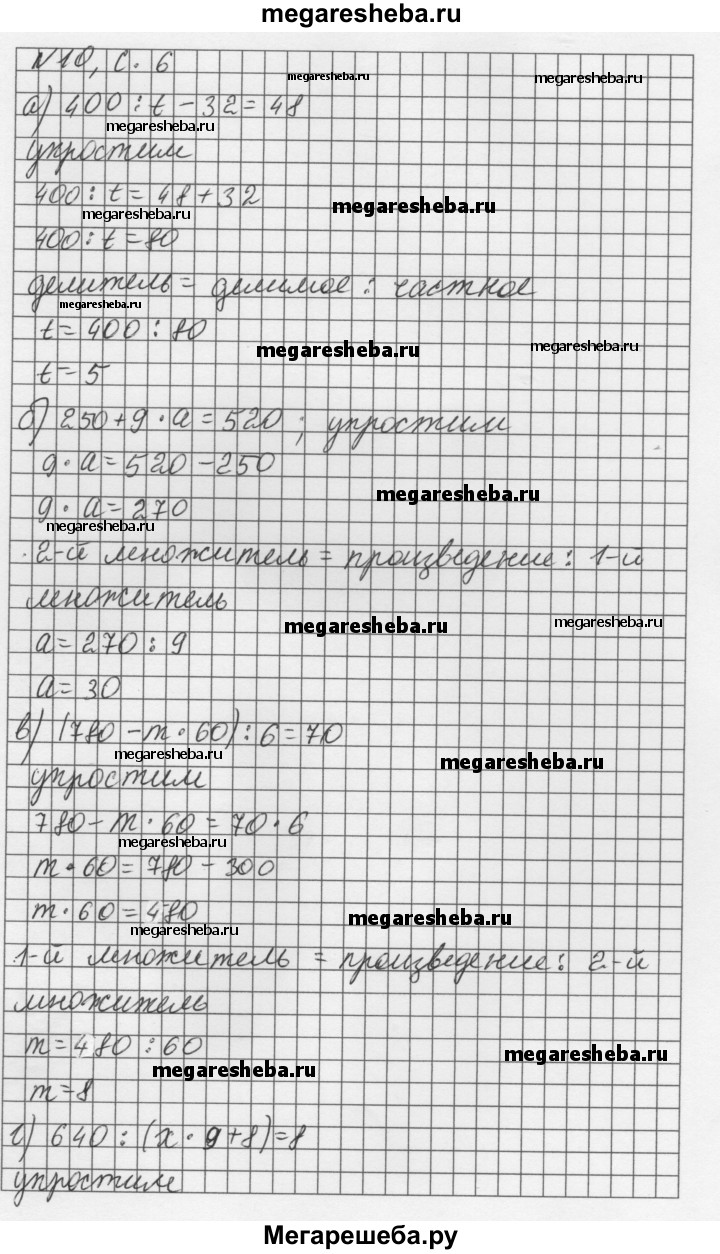 megaresheba.ru
N10, с. 6
megaresheba.ru
megaresheba.ru
а) 400 : t - 32 = 48
megaresheba.ru
упростим
400 : t = 48 + 32
megaresheba.ru
megaresheba.ru
400 : t = 80
делитель = делимое : частное
megaresheba.ru
t = 400 : 80
megaresheba.ru
megaresheba.ru
t = 5
б) 250 + 9 · a = 520 ; упростим
9 · a = 520 - 250
megaresheba.ru
9 · a = 270
megaresheba.ru
2-й множитель = произведение : 1-й
множитель
megaresheba.ru
megaresheba.ru
a = 270 : 9
a = 30
в) (780 - m · 60) : 6 = 70
megaresheba.ru
megaresheba.ru
упростим
780 - m · 60 = 70 · 6
megaresheba.ru
m · 60 = 780 - 300
m · 60 = 480
megaresheba.ru
megaresheba.ru
1-й множитель = произведение : 2-й
множитель
m = 480 : 60
megaresheba.ru
megaresheba.ru
m = 8
г) 640 : (x · 9 + 8) = 8
упростим
Мегарешеба.ру